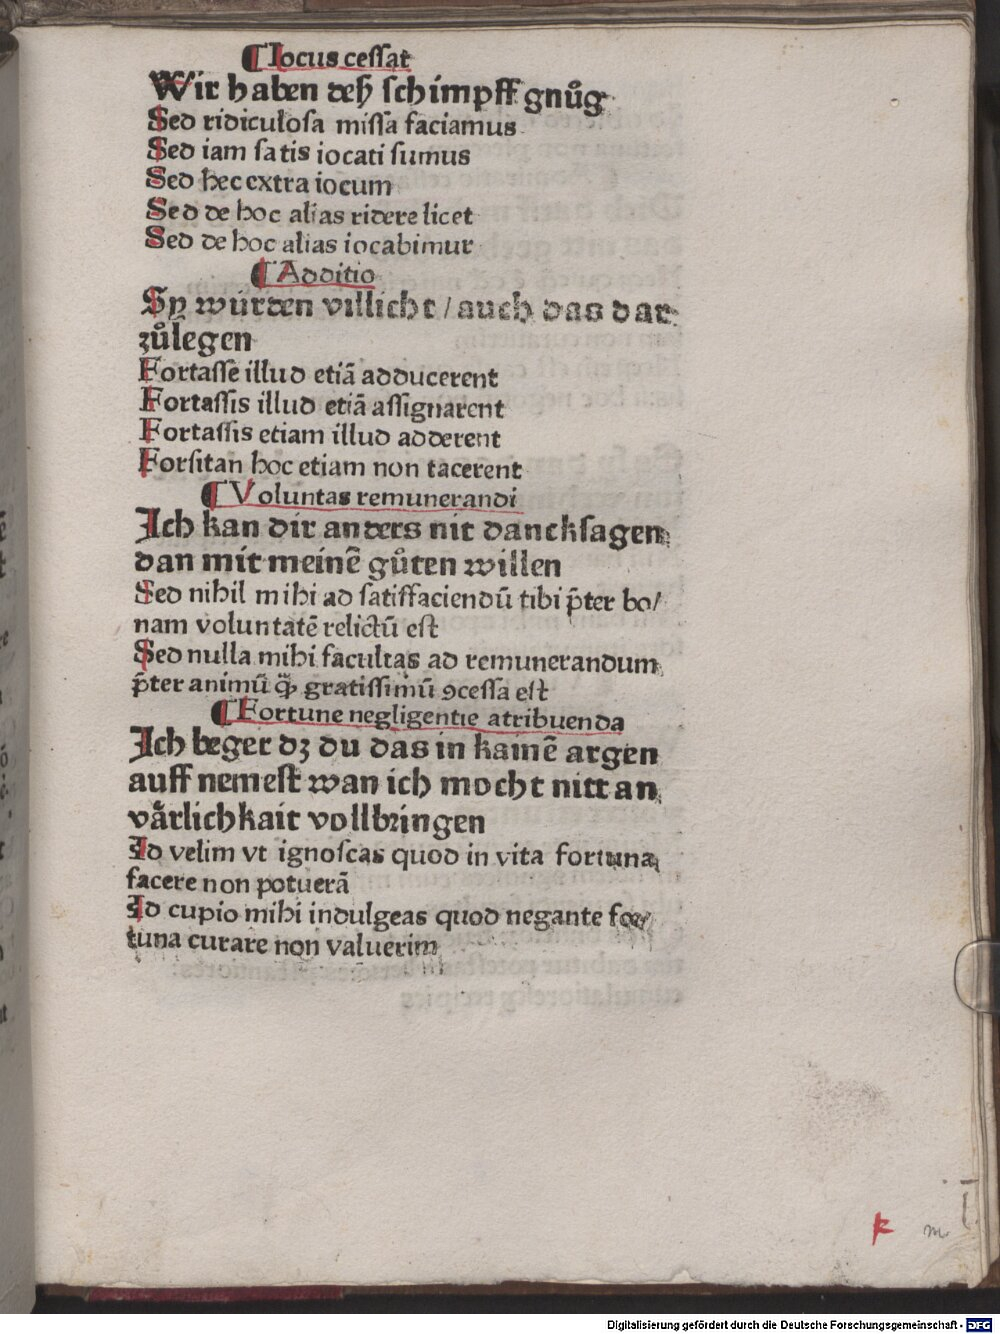 ¶ Iocus cessat
Wir haben deß schimpff gnůg
Sed ridiculosa missa faciamus
Sed iam satis iocati sumus
Sed hec extra iocum
Sed de hoc alias ridere licet
Sed de hoc alias iocabimur
¶ Additio
Sy wurden villicht / auch das dar
zůlegen
Fortasse illud etiā adducerent
Fortassis illud etiā assignarent
Fortassis etiam illud adderent
Forsitan hoc etiam non tacerent
¶ Voluntas remunerandi
Ich kan dir anders nit dancksagen
dan mit meinē gůten willen
Sed nihil mihi ad satisfaciendū tibi p̄ter bo/
nam voluntatē relictū est
Sed nulla mihi facultas ad remunerandum
p̄ter animū ꝙ̄ gratissimū ꝯcessa est
¶ Fortune negligentie atribuenda
Ich beger dz du das in kainē argen
auff nemest wan ich mocht nitt an
värlichkait vollbringen
Id velim vt ignoscas quod in vita fortuna
facere non potuerā
Id cupio mihi indulgeas quod negante for/
tuna curare non valuerim
k
m
Digitalisierung gefördert durch die Deutsche Forschungsgemeinschaft - DFG